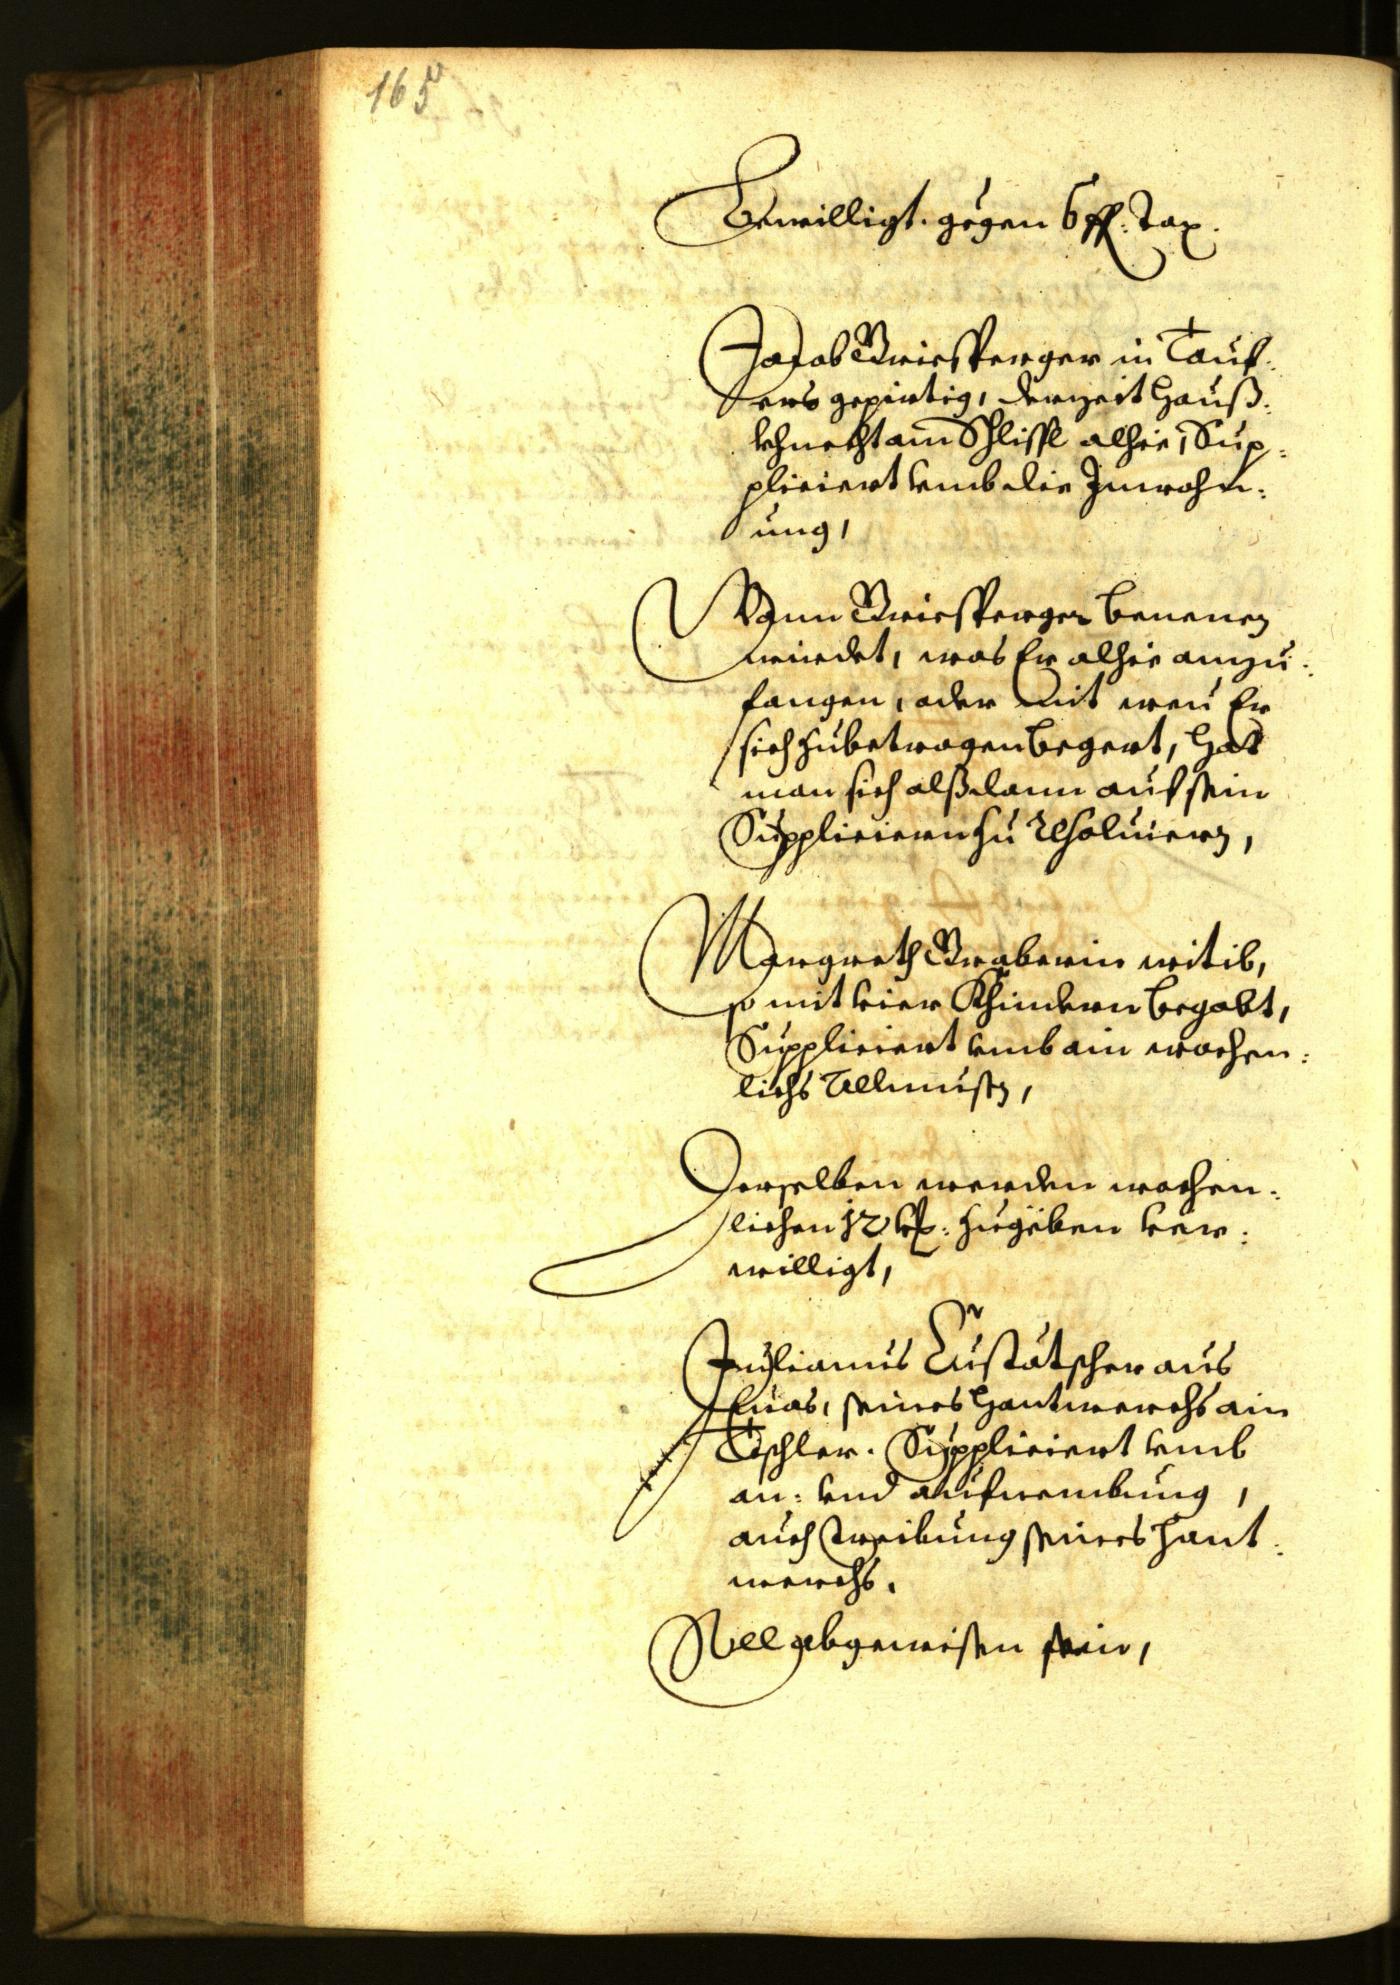 165
Bewilligt. gegen 6 fl: Tax.
Jacob Griesperger in Tauf¬
ers gepirtig, derzeit Hauß¬
khnecht am Schlissl alhie, Sup¬
pliciert vmb die Inwohn¬
ung,
Wann Griesperger benenen
wierdet, was Er alhie anzu¬
fangen, oder mit weu Er
sich zubetragen begert, hat
man sich alßdann auf sein
Supplicieren zu Resoluiern,
Margreth Graberin witib,
so mit vier Khindern begabt,
Suppliciert vmb ain wochen¬
lichs Allmusen,
Derselben werden wochen¬
lichen 12 kr: zugeben ver¬
willigt,
Julianus Custatscher aus
Euas, seines Hantwerchs ain
Tischler. Suppliciert vmb
an: vnd aufnembung,
auch treibung seines Hant¬
werchs.
Soll abgewisen sein,